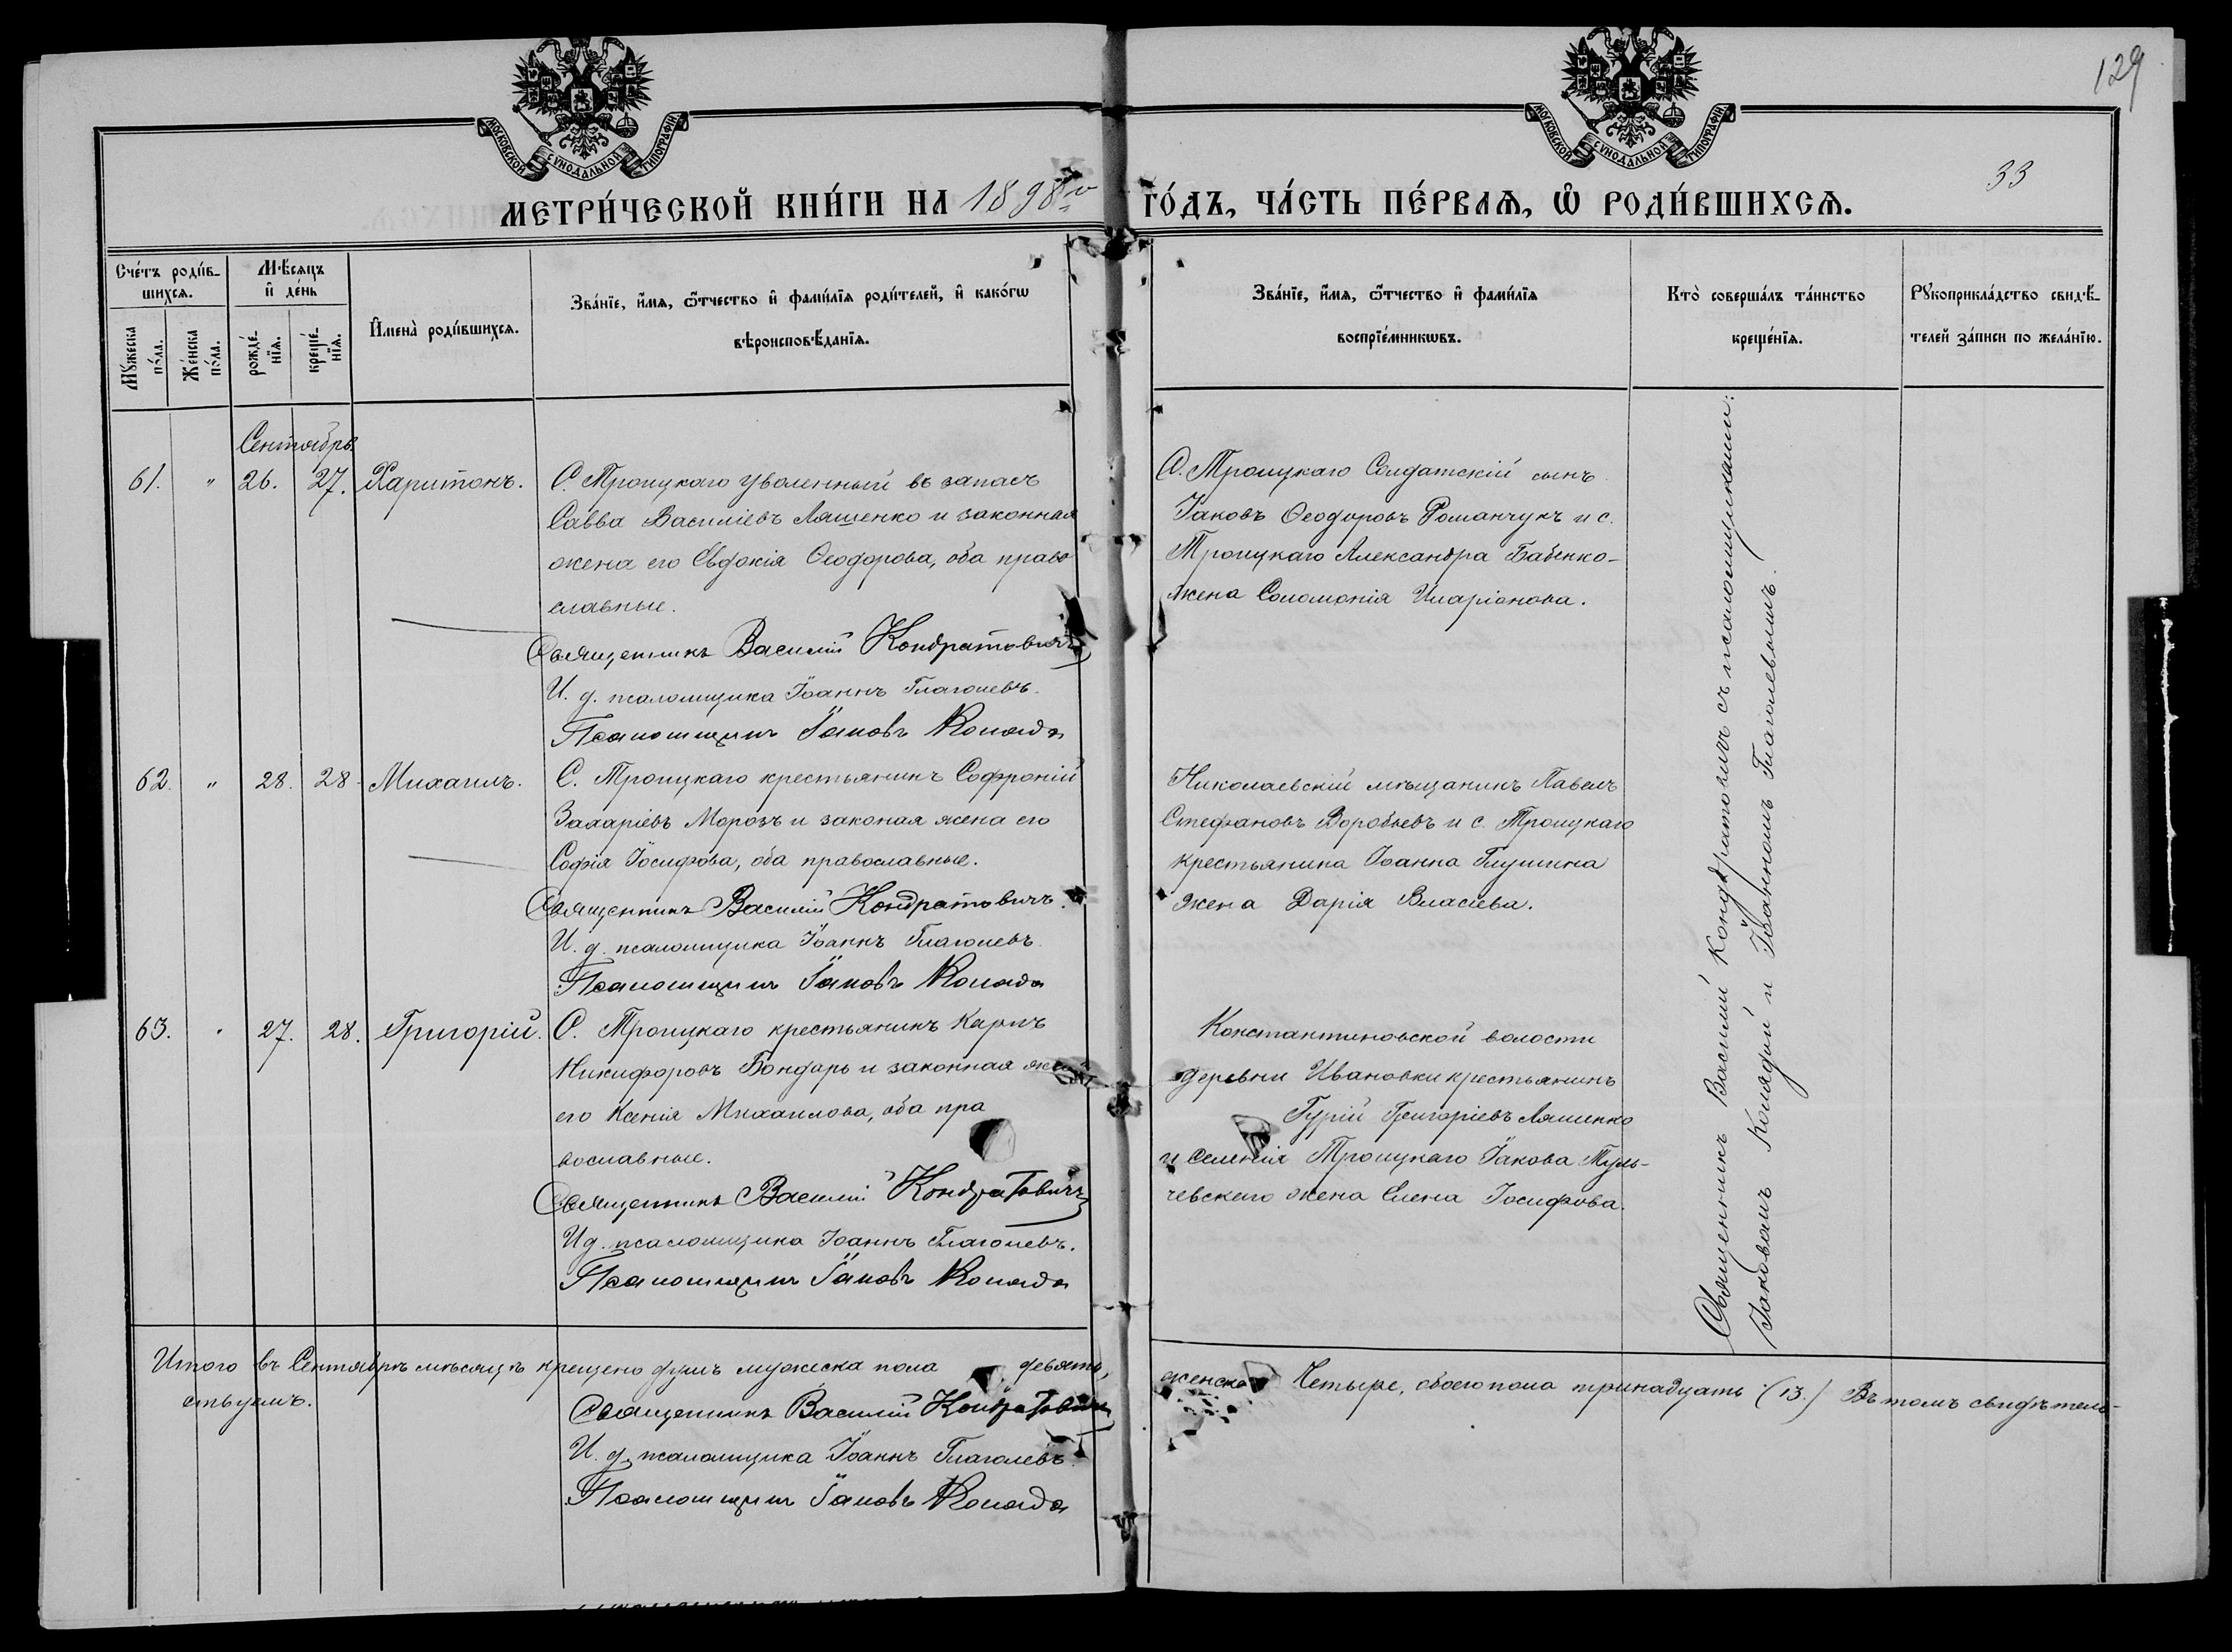 129
33
МОСКОВСКОЙ СУНОДАЛЬНОЙ ТИПОГРАФІИ
МОСКОВСКОЙ СУНОДАЛЬНОЙ ТИПОГРАФІИ
МЕТРИ́ЧЕСКОЙ КНИ́ГИ НА 1898й ГО́ДЪ, ЧА́СТЬ ПЕ́РВАѦ, Ѡ РОДИ́ВШИХСѦ.
Сче́тъ роди́в-
шихсѧ.
Мꙋжеска
по́ла.
Же́нска
по́ла.
Мѣ́сѧцъ
и҆ де́нь
рожде́-
нїѧ.
креще́-
нїѧ.
И҆мена̀ роди́вшихсѧ.
Зва́нїе, и҆́мѧ, ѻ҆́тчество и҆ фами́лїѧ роди́телей, и҆ како́гѡ
вѣроисповѣ́данїѧ.
Зва́нїе, и҆́мѧ, ѻ҆́тчество и҆ фами́лїѧ
воспрїе́мникѡвъ.
Кто̀ соверша́лъ та́инство
креще́нїѧ.
Рꙋкоприкла́дство свидѣ́-
телей за́писи по жела́нїю.
Сентябрь
61. " 26. 27. Харитонъ.
С. Троицкаго уволенный въ запасъ
Савва Василіевъ Ляшенко и законная
жена его Евдокія Ѳеодорова, оба право
славные.
Священникъ Василій Кондратовичъ
И. д. псаломщика Іоаннъ Глаголевъ.
Псаломщикъ Іаковъ Коляда
С. Троицкаго Солдатскій сынъ
Іаковъ Ѳеодоровъ Романчукъ и с.
Троицкаго Александра Бабенко-
жена Соломонія Иларіонова.
62. " 28. 28. Михаилъ.
С. Троицкаго крестьянинъ Софроній
Захаріевъ Морозъ и законая жена его
Софія Іосифова, оба православные.
Священникъ Василій Кондратовичъ.
И. д. псаломщика Іоаннъ Глаголевъ.
Псаломщикъ Іаковъ Коляда
Николаевскій мѣщанинъ Павелъ
Стефановъ Воробьевъ и с. Троицкаго
крестьянина Іоанна Глушина
жена Дарія Власіева.
63. " 27. 28. Григорій.
С. Троицкаго крестьянинъ Карпъ
Никифоровъ Бондарь и законная жена
его Ксенія Михаилова, оба пра
вославные.
Священникъ Василій Кондратовичъ
И д. псаломщика Іоаннъ Глаголевъ.
Псаломщикъ Іаковъ Коляда
Константиновской волости
деревни Ивановки крестьянинъ
Гурій Григоріевъ Ляшенко
и селенія Троицкаго Іакова Туль-
чевскаго жена Елена Іосифова.
Священникъ Василій Кондратовичъ съ псаломщиками:
Іаковомъ Колядой и Іоанномъ Глаголевымъ.
Итого въ Сентябрѣ мѣсяцѣ крещено душъ мужеска пола девять, женска Четыре, обоего пола тринадцать (13.) Въ томъ свидѣтель-
ствуемъ.
Священникъ Василій Кондратовичъ
И. д. псаломщика Іоаннъ Глаголевъ
Псаломщикъ Іаковъ Коляда